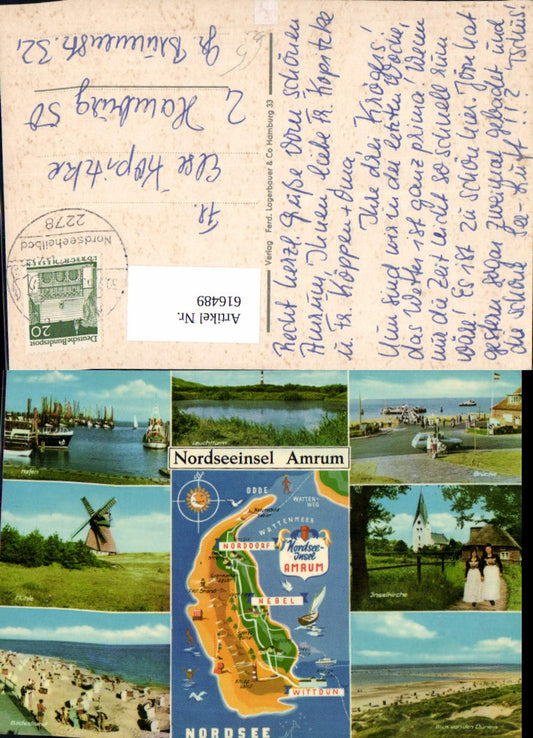 Recht herzl. Grüße vom schönen
Amrum Ihnen liebe Fr. Kopitzke
u. Fr. Köppen + Oma
Ihre drei Krögers!
Nun sind wir in der letzten Woche,
das Wetter ist ganz prima! Wenn
nur die Zeit nicht so schnell rum
wäre! Es ist zu schön hier. Jörn hat
gestern sogar zweimal gebadet und
die schöne See-Luft!!! Tschüs!
Verlag Ferd. Lagerbauer & Co Hamburg 33
Fr.
Else Kopitzke
2 Hamburg 50
Gr. Brunnenstr. 32,
2278
Nordseeheilbad
LORSCH HESSEN
20
Deutsche Bundespost
Artikel Nr.
616489
Hafen
Leuchtturm
Brücke
Nordseeinsel Amrum
Mühle
Inselkirche
Badestrand
Blick von den Dünen
ODDE
WATTEN-
WEG
WATTENMEER
NORDDORF
Nordsee-
insel
AMRUM
NEBEL
WITTDÜN
NORDSEE